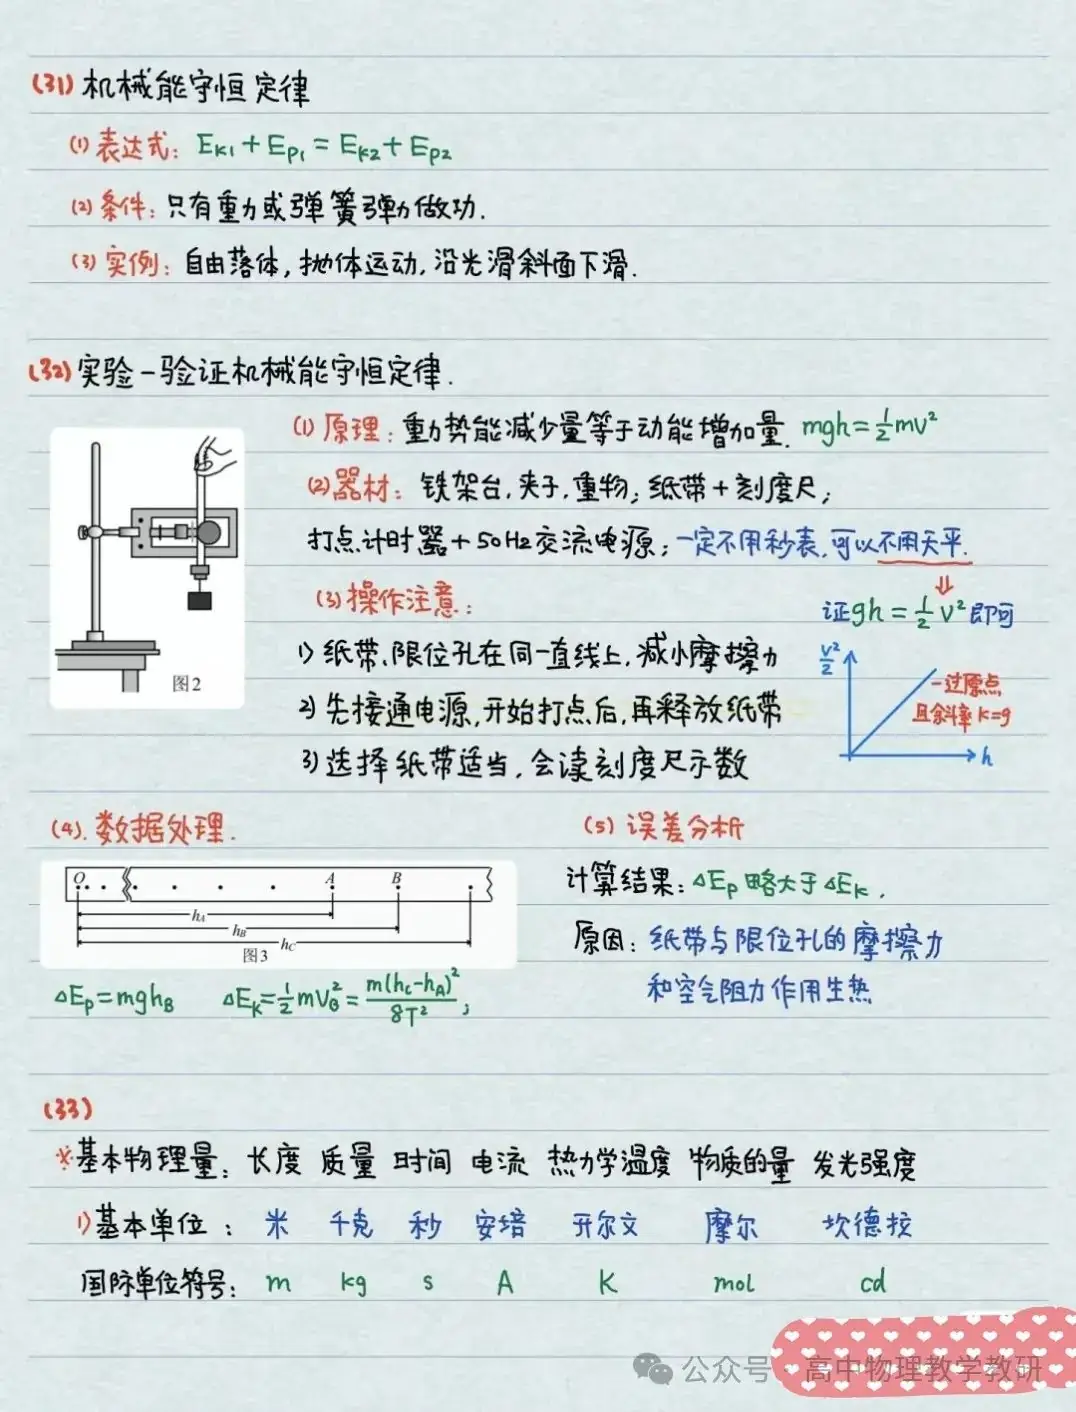 (31) 机械能守恒定律
(1) 表达式: Ek1+Ep1=Ek2+Ep2
(2) 条件: 只有重力或弹簧弹力做功.
(3) 实例: 自由落体, 抛体运动, 沿光滑斜面下滑.
(32) 实验-验证机械能守恒定律.
(1) 原理: 重力势能减少量等于动能增加量. mgh=½mv²
(2) 器材: 铁架台, 夹子, 重物; 纸带+刻度尺;
打点计时器+50Hz交流电源; 一定不用秒表, 可以不用天平.
⇓
(3) 操作注意:
证gh=½v²即可
1) 纸带、限位孔在同一直线上, 减小摩擦力
2) 先接通电源, 开始打点后, 再释放纸带
3) 选择纸带适当, 会读刻度尺示数
图2
v²/2
一过原点
且斜率k=g
h
(4). 数据处理.
O A B
hA
hB
hC
图3
ΔEp=mghB ΔEk=½mvB²=m(hC-hA)²/8T²;
(5) 误差分析
计算结果: ΔEp略大于ΔEk.
原因: 纸带与限位孔的摩擦力
和空气阻力作用生热
(33)
※基本物理量: 长度 质量 时间 电流 热力学温度 物质的量 发光强度
1) 基本单位: 米 千克 秒 安培 开尔文 摩尔 坎德拉
国际单位符号: m kg s A K mol cd
公众号 高中物理教学教研